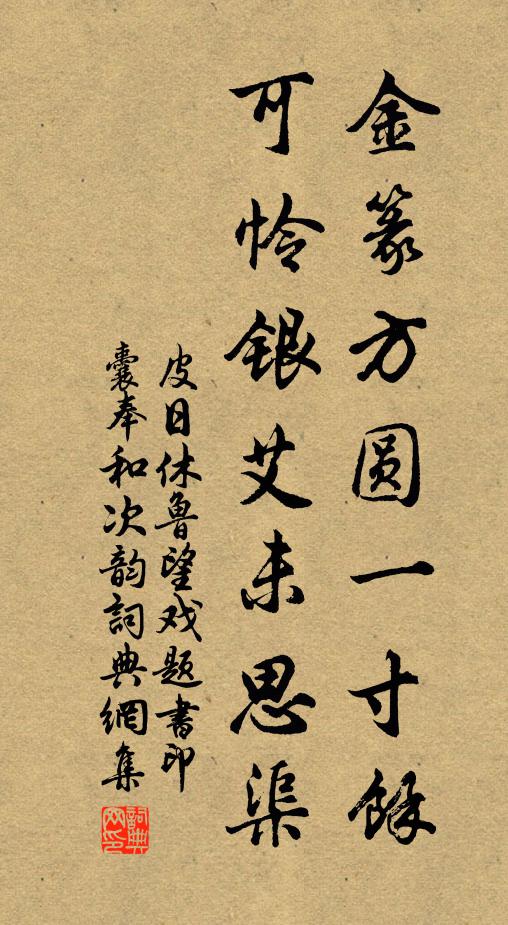 金篆方圆一寸餘
可怜银艾未思渠
皮日休鲁望戏题书印
囊奉和次韵詞典網集
詞典
网印